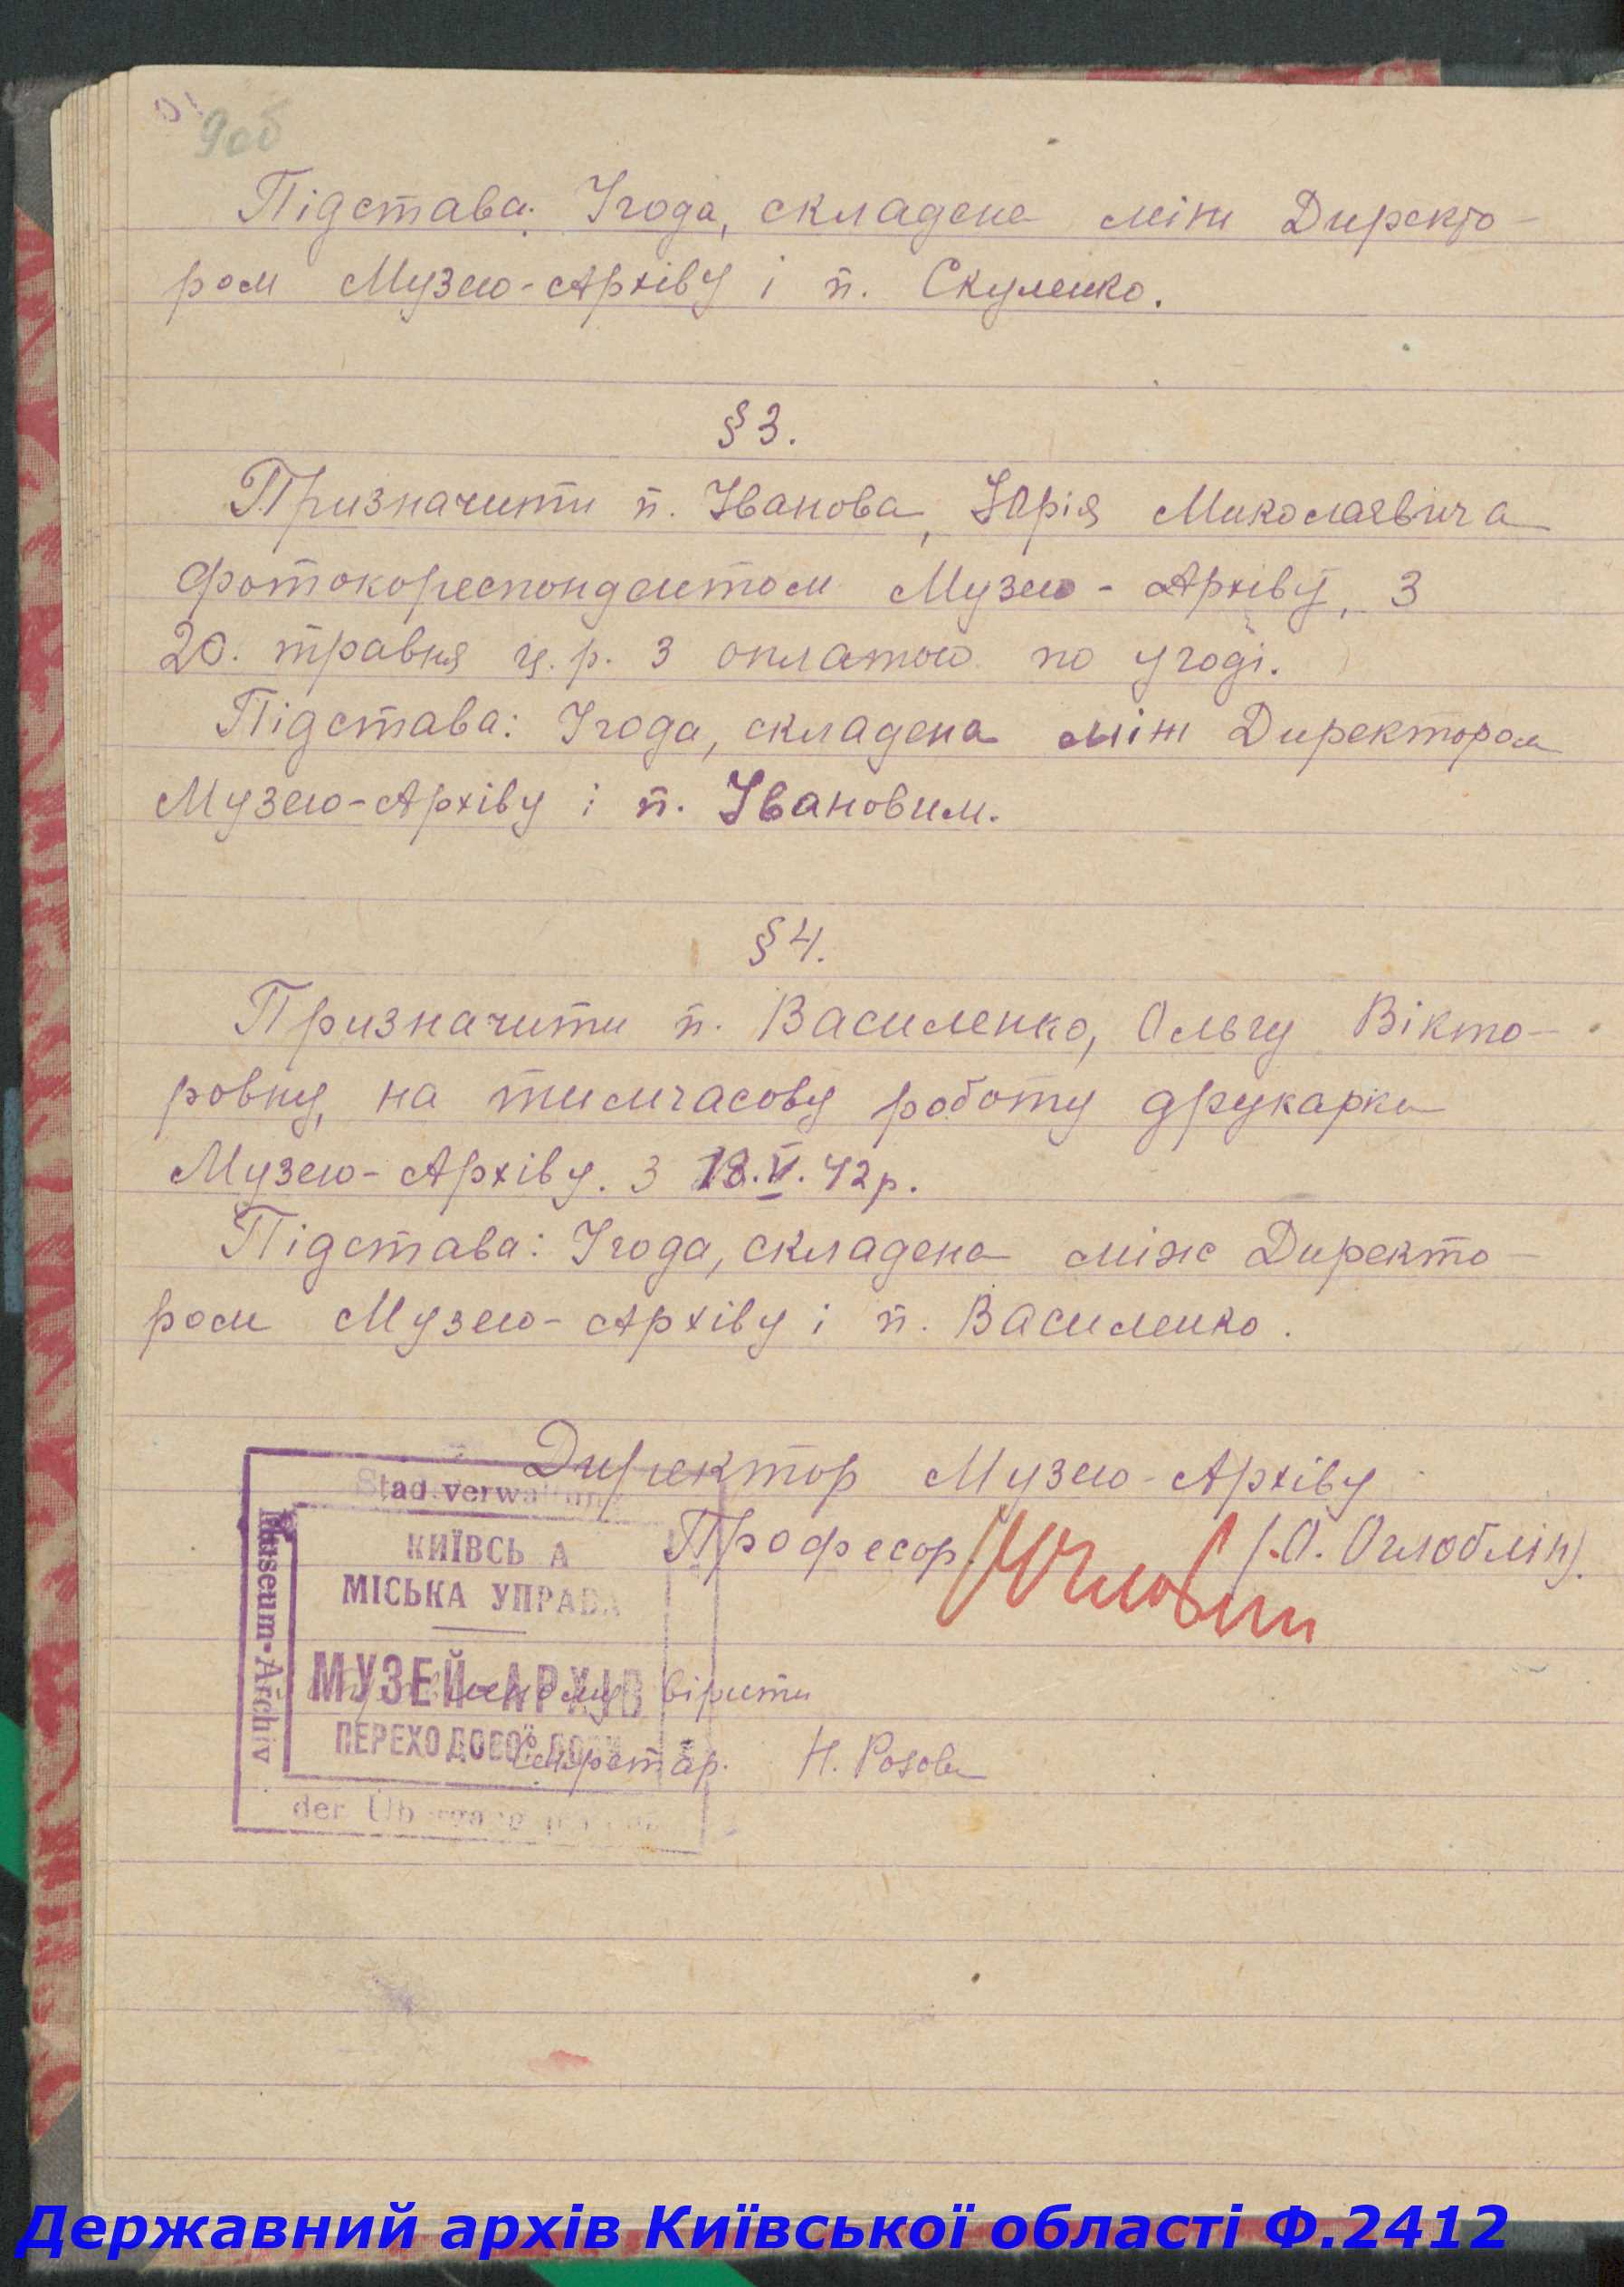 9об
Підстава: Угода, складена між Директо-
ром Музею-Архіву і п. Скуленко.
§ 3.
Призначити п. Іванова, Юрія Миколаєвича
фотокореспондентом Музею-Архіву, з
20. травня ц.р. з оплатою по угоді.
Підстава: Угода, складена між Директором
Музею-Архіву і п. Івановим.
§ 4.
Призначити п. Василенко, Ольгу Вікто-
ровну, на тимчасову роботу друкарки
Музею-Архіву. З 18.V.42р.
Підстава: Угода, складена між Директо-
ром Музею-Архіву і п. Василенко.
Директор Музею-Архіву
Професор (О. Оглоблін).
Stadtverwaltung
КИЇВСЬКА
МІСЬКА УПРАВА
МУЗЕЙ-АРХІВ
ПЕРЕХОДОВОЇ ДОБИ
Museum-Archiv
der Übergangs
вірити
Секретар. Н. Розова
Державний архів Київської області Ф.2412